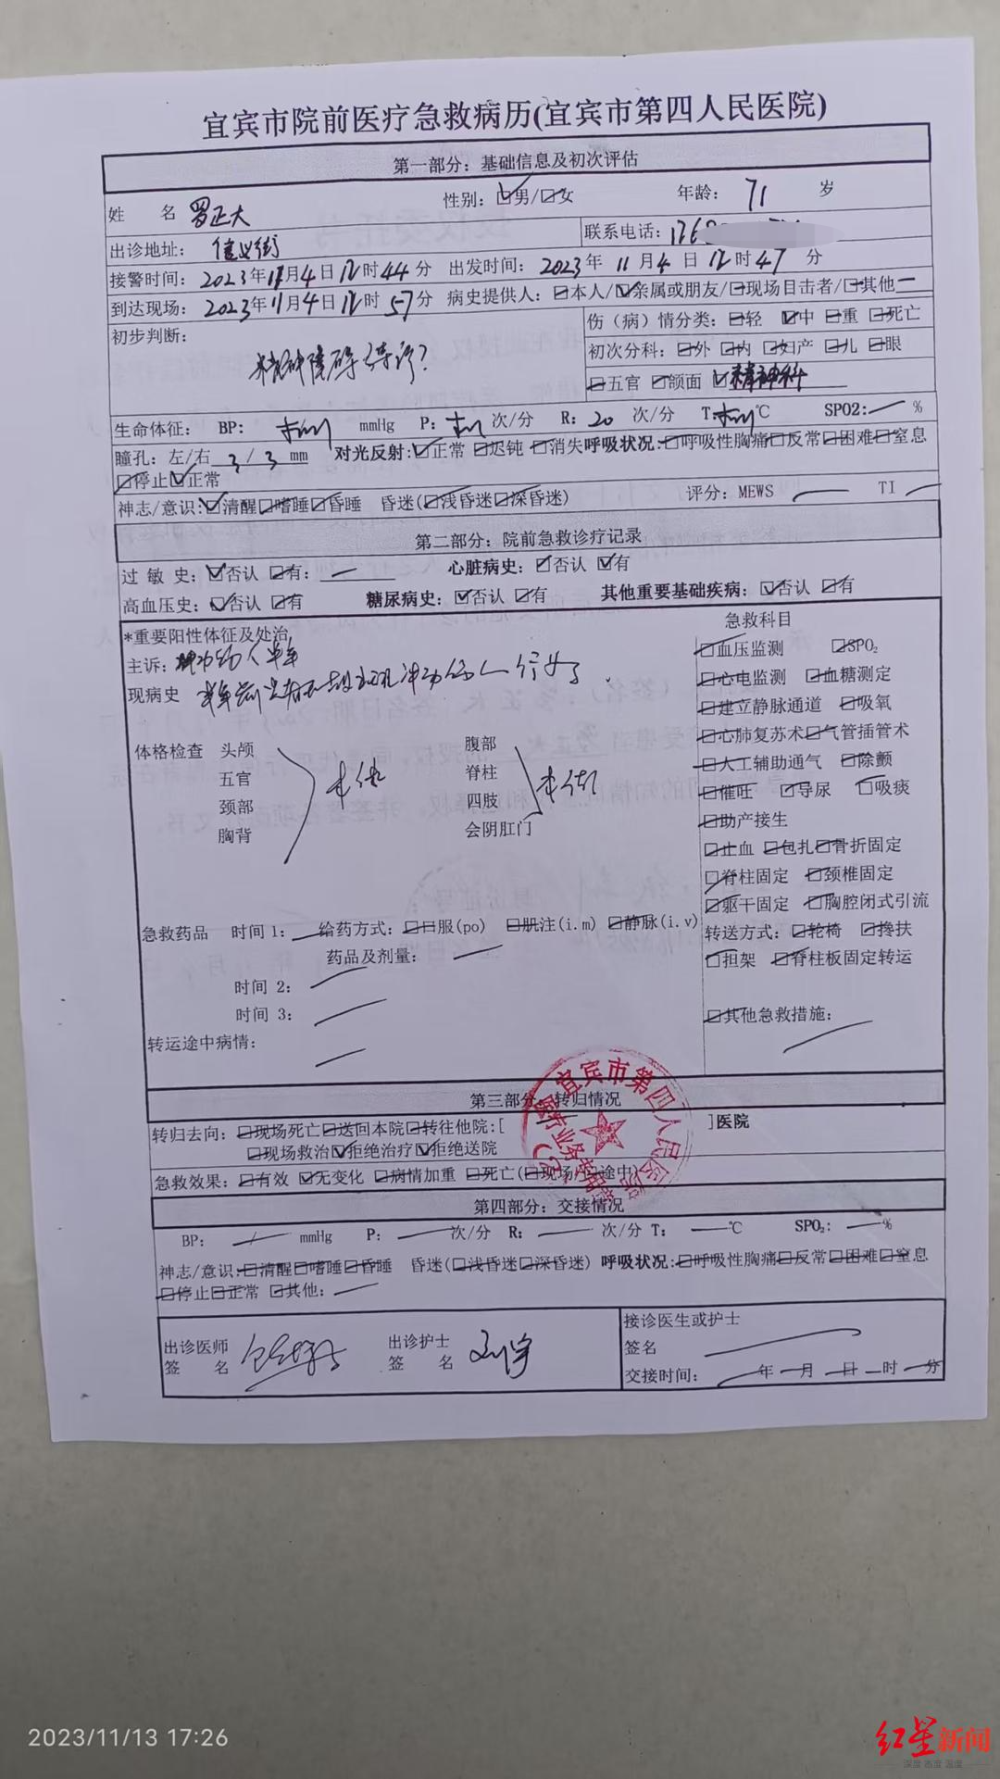 宜宾市院前医疗急救病历(宜宾市第四人民医院)
第一部分：基础信息及初次评估
姓 名 罗正大 性别：☑男/□女 年龄：71 岁
出诊地址：信义街 联系电话：1768
接警时间：2023年11月4日12时44分 出发时间：2023年11月4日12时47分
到达现场：2023年11月4日12时57分 病史提供人：□本人/☑亲属或朋友/□现场目击者/□其他
初步判断： 伤（病）情分类：□轻 ☑中 □重 □死亡
精神障碍待诊？ 初次分科：□外 □内 □妇产 □儿 □眼
□五官 □颌面 ☑精神科
生命体征： BP：未测 mmHg P：未测 次/分 R：20 次/分 T：未测℃ SPO2：— %
瞳孔：左/右 3 / 3 mm 对光反射：☑正常 □迟钝 □消失 呼吸状况：□呼吸性胸痛□反常□困难□窒息
□停止☑正常
神志/意识：☑清醒□嗜睡□昏睡 昏迷(□浅昏迷□深昏迷) 评分：MEWS — TI —
第二部分：院前急救诊疗记录
过 敏 史：☑否认 □有：— 心脏病史：☑否认 ☑有
高血压史：☑否认 □有 糖尿病史：☑否认 □有 其他重要基础疾病：☑否认 □有
*重要阳性体征及处治 急救科目
主诉：冲动伤人半年 □血压监测 □SPO₂
现病史 半年前 冲动伤人行为 □心电监测 □血糖测定
□建立静脉通道 □吸氧
体格检查 头颅 腹部 □心肺复苏术□气管插管术
五官 脊柱 □人工辅助通气 □除颤
颈部 未做 四肢 未做 □催吐 □导尿 □吸痰
胸背 会阴肛门 □助产接生
□止血 □包扎□骨折固定
□脊柱固定 □颈椎固定
□躯干固定 □胸腔闭式引流
急救药品 时间 1：— 给药方式：□口服(po) □肌注(i.m) □静脉(i.v) 转送方式：□轮椅 □搀扶
药品及剂量：— □担架 □脊柱板固定转运
时间 2：
时间 3： □其他急救措施：
转运途中病情：
第三部分：转归情况
转归去向：□现场死亡□送回本院□转往他院：[ ]医院
□现场救治☑拒绝治疗☑拒绝送院
急救效果：□有效 ☑无变化 □病情加重 □死亡(□现场/□途中)
宜宾市第四人民医院
医疗业务专用章
第四部分：交接情况
BP：— mmHg P：— 次/分 R：— 次/分 T：—℃ SPO₂：—%
神志/意识：□清醒□嗜睡□昏睡 昏迷(□浅昏迷□深昏迷) 呼吸状况：□呼吸性胸痛□反常□困难□窒息
□停止□正常 □其他：—
出诊医师 出诊护士 接诊医生或护士
签 名 签 名 签名
交接时间： 年 月 日 时 分
2023/11/13 17:26
红星新闻
深度 态度 温度